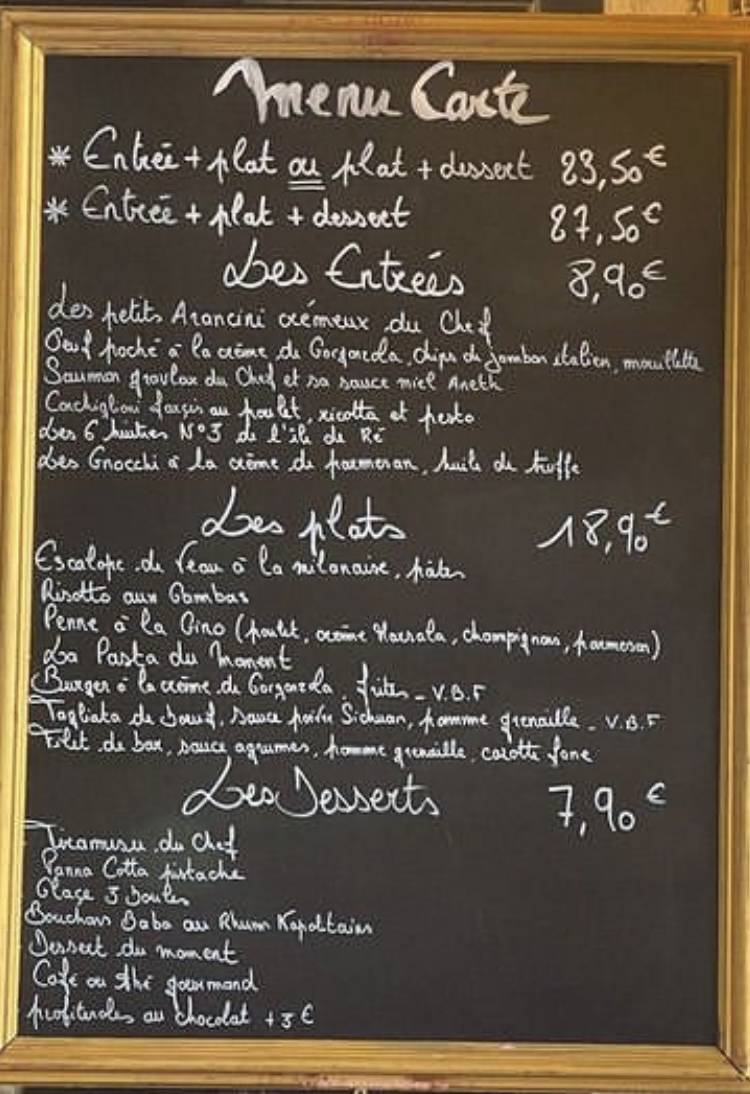 Menu Carte
* Entrée + plat ou plat + dessert 23,50€
* Entrée + plat + dessert 27,50€
Les Entrées 8,90€
Les petits Arancini crémeux du Chef
Oeuf poché à la crème de Gorgonzola, chips de jambon italien, mouillette
Saumon gravlax du Chef et sa sauce miel Aneth
Conchiglioni farçis au poulet, ricotta et pesto
Les 6 huitres N°3 de l'île de Ré
Les Gnocchi à la crème de parmesan, huile de truffe
Les plats 18,90€
Escalope de Veau à la milanaise, pâtes
Risotto aux Gambas
Penne à la Gino (poulet, crème Marsala, champignons, parmesan)
La Pasta du Moment
Burger à la crème de Gorgonzola, frites - V.B.F
Tagliata de boeuf, sauce poivre Sichuan, pomme grenaille - V.B.F
Filet de bar, sauce agrumes, pomme grenaille, carotte fane
Les Desserts 7,90€
Tiramisu du Chef
Panna Cotta pistache
Glaçe 3 boules
Bouchons Baba au Rhum Napolitains
Dessert du moment
Café ou thé gourmand
profiteroles au chocolat +3€